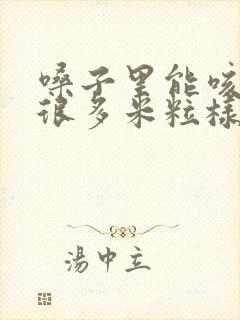 嗓子里能咳
很多米粒样
湯中立